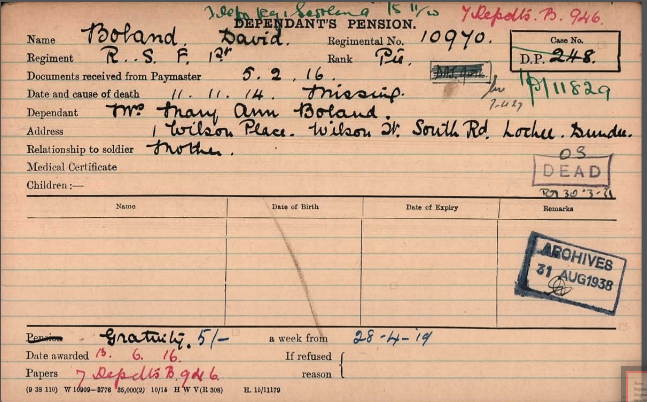 15 11/20
7 Depdts. B. 946.
DEPENDANT'S PENSION.
Name Boland. David. Regimental No. 10970. Case No.
Regiment R. S. F. 1st Rank Pte. D.P. 248.
Documents received from Paymaster 5. 2. 16.
Date and cause of death 11. 11. 14. Missing. 11829
Dependant Mrs Mary Ann Boland.
Address 1 Wilson Place. Wilson St. South Rd. Lochee. Dundee.
Relationship to soldier Mother.
Medical Certificate
DEAD
Children :—
Name Date of Birth Date of Expiry Remarks
ARCHIVES
31 AUG 1938
Pension Gratuity. 5/- a week from 28-4-19
Date awarded 13. 6. 16. If refused
Papers 7 Depdts B. 946. reason
(9 38 110) W 10909—3776 35,000(2) 10/15 H W V(R 308) H. 15/11179